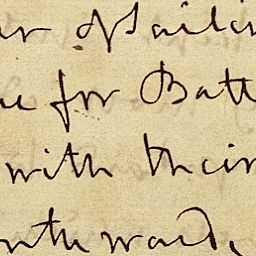 er of Sailin
ne for Batt
with their
onthward,